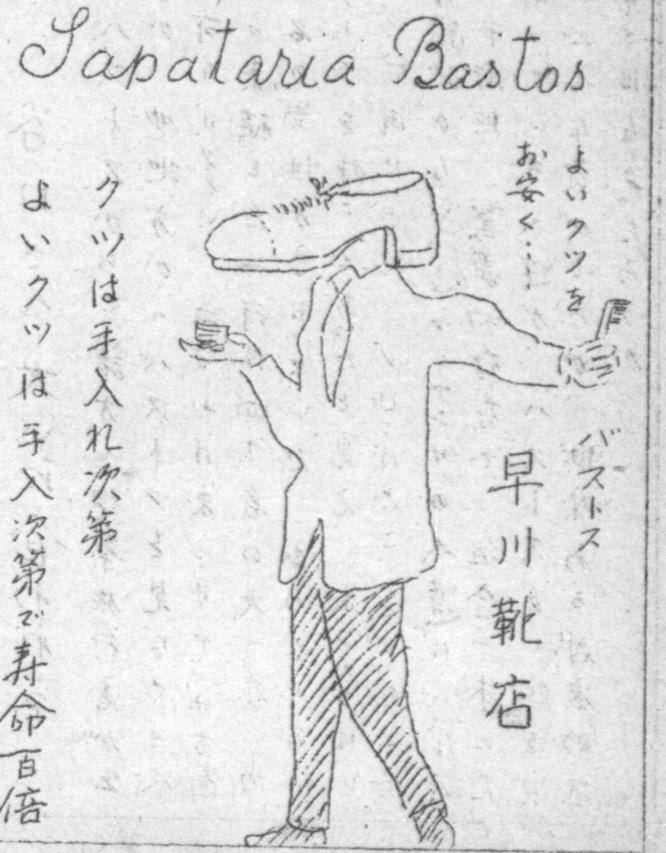 Sapataria Bastos
よいクツを
お安く…
バストス
早川靴店
クツは手入れ次第
よいクツは手入次第で寿命百倍